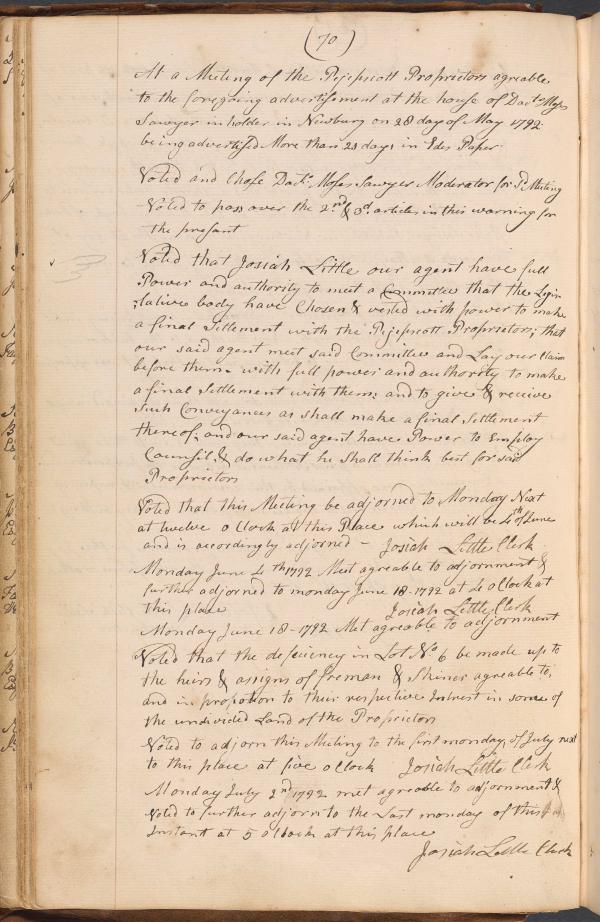 (70)
At a Meeting of the Pejepscott Proprietors agreable
to the foregoing advertisement at the house of Dact.r Moses
Sawyer in holder in Newbury on 28 day of May 1792
being advertised More than 21 days in Edes Paper
Voted and Chose Dact.r Moses Sawyer Moderator for s.d Meeting
Voted to pass over the 2.nd & 3d. articles in this warning for
the presant
Voted that Josiah Little our agent have full
Power and authority to meet a Committee that the Legis
:lative body have Chosen & vested with power to make
a final Settlement with the Pejepscott Proprietors; that
our said agent meet said Committee and Lay our Claim
before them with full power and authority to make
a final Settlement with them; and to give & receive
Such Conveyances as shall make a final Settlement
thereof; and our said agent have Power to Employ
Council & do what he Shall think best for said
Proprietors
Voted that this Meeting be adjorned to Monday Next
at twelve o Clock at this Place which will be 4th of June
and is accordingly adjorned - Josiah Little Clerk
Monday June 4th 1792 Meet agreable to adjornment &
further adjorned to monday June 18-1792 at 4 o Clock at
this place Josiah Little Clerk
Monday June 18-1792 Met agreable to adjornment
Voted that the defeciency in Lot No. 6 be made up to
the heirs & assigns of Freman & Skiner agreable to,
and in propotion to their respective Intrest in some of
the undivided Land of the Proprietors
Voted to adjorn this Meeting to the first monday of July next
to this place at five o Clock Josiah Little Clerk
Monday July 2nd 1792 met agreable to adjornment &
Voted to further adjorn to the Last monday of this
Instant at 5 o Clock at this place
Josiah Little Clerk